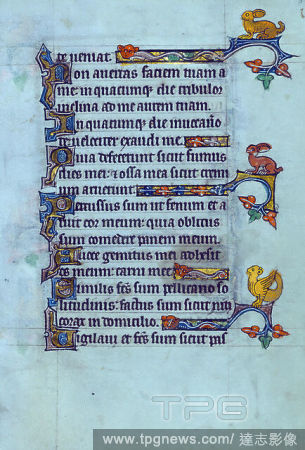 te veniat.
Non avertas faciem tuam a
me: in quacumque die tribulor
inclina ad me aurem tuam.
In quacumque die invocavero
te velociter exaudi me.
Quia defecerunt sicut fumus
dies mei: et ossa mea sicut cremi
um aruerunt.
Percussus sum ut fenum et a
ruit cor meum: quia oblitus
sum comedere panem meum.
A voce gemitus mei adhesit
os meum: carni mee.
Similis factus sum pellicano so
litudinis: factus sum sicut nicti
corax in domicilio.
Vigilavi et factus sum sicut pas
TPG
www.tpgnews.com/達志影像